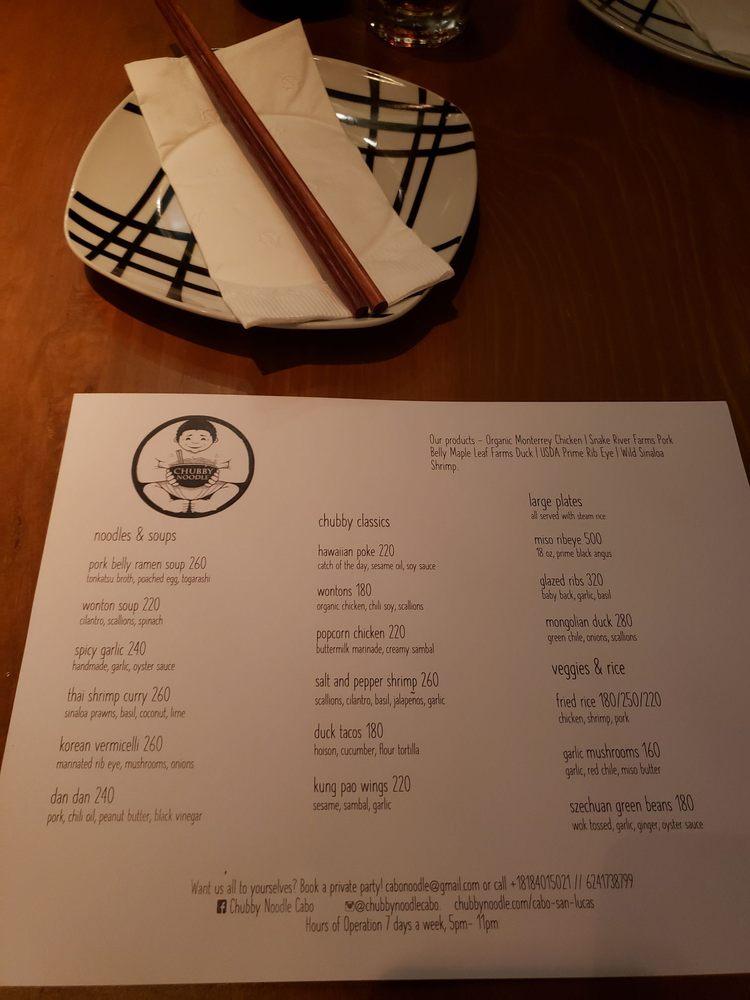 CHUBBY
NOODLE
Our products - Organic Monterrey Chicken | Snake River Farms Pork
Belly Maple Leaf Farms Duck | USDA Prime Rib Eye | Wild Sinaloa
Shrimp.
noodles & soups
pork belly ramen soup 260
tonkatsu broth, poached egg, togarashi
wonton soup 220
cilantro, scallions, spinach
spicy garlic 240
handmade, garlic, oyster sauce
thai shrimp curry 260
sinaloa prawns, basil, coconut, lime
korean vermicelli 260
marinated rib eye, mushrooms, onions
dan dan 240
pork, chili oil, peanut butter, black vinegar
chubby classics
hawaiian poke 220
catch of the day, sesame oil, soy sauce
wontons 180
organic chicken, chili soy, scallions
popcorn chicken 220
buttermilk marinade, creamy sambal
salt and pepper shrimp 260
scallions, cilantro, basil, jalapeños, garlic
duck tacos 180
hoison, cucumber, flour tortilla
kung pao wings 220
sesame, sambal, garlic
large plates
all served with steam rice
miso ribeye 500
18 oz, prime black angus
glazed ribs 320
baby back, garlic, basil
mongolian duck 280
green chile, onions, scallions
veggies & rice
fried rice 180/250/220
chicken, shrimp, pork
garlic mushrooms 160
garlic, red chile, miso butter
szechuan green beans 180
wok tossed, garlic, ginger, oyster sauce
Want us all to yourselves? Book a private party! cabonoodle@gmail.com or call +18184015021 // 6241738799
Chubby Noodle Cabo @chubbynoodlecabo. chubbynoodle.com/cabo-san-lucas
Hours of Operation 7 days a week, 5pm- 11pm